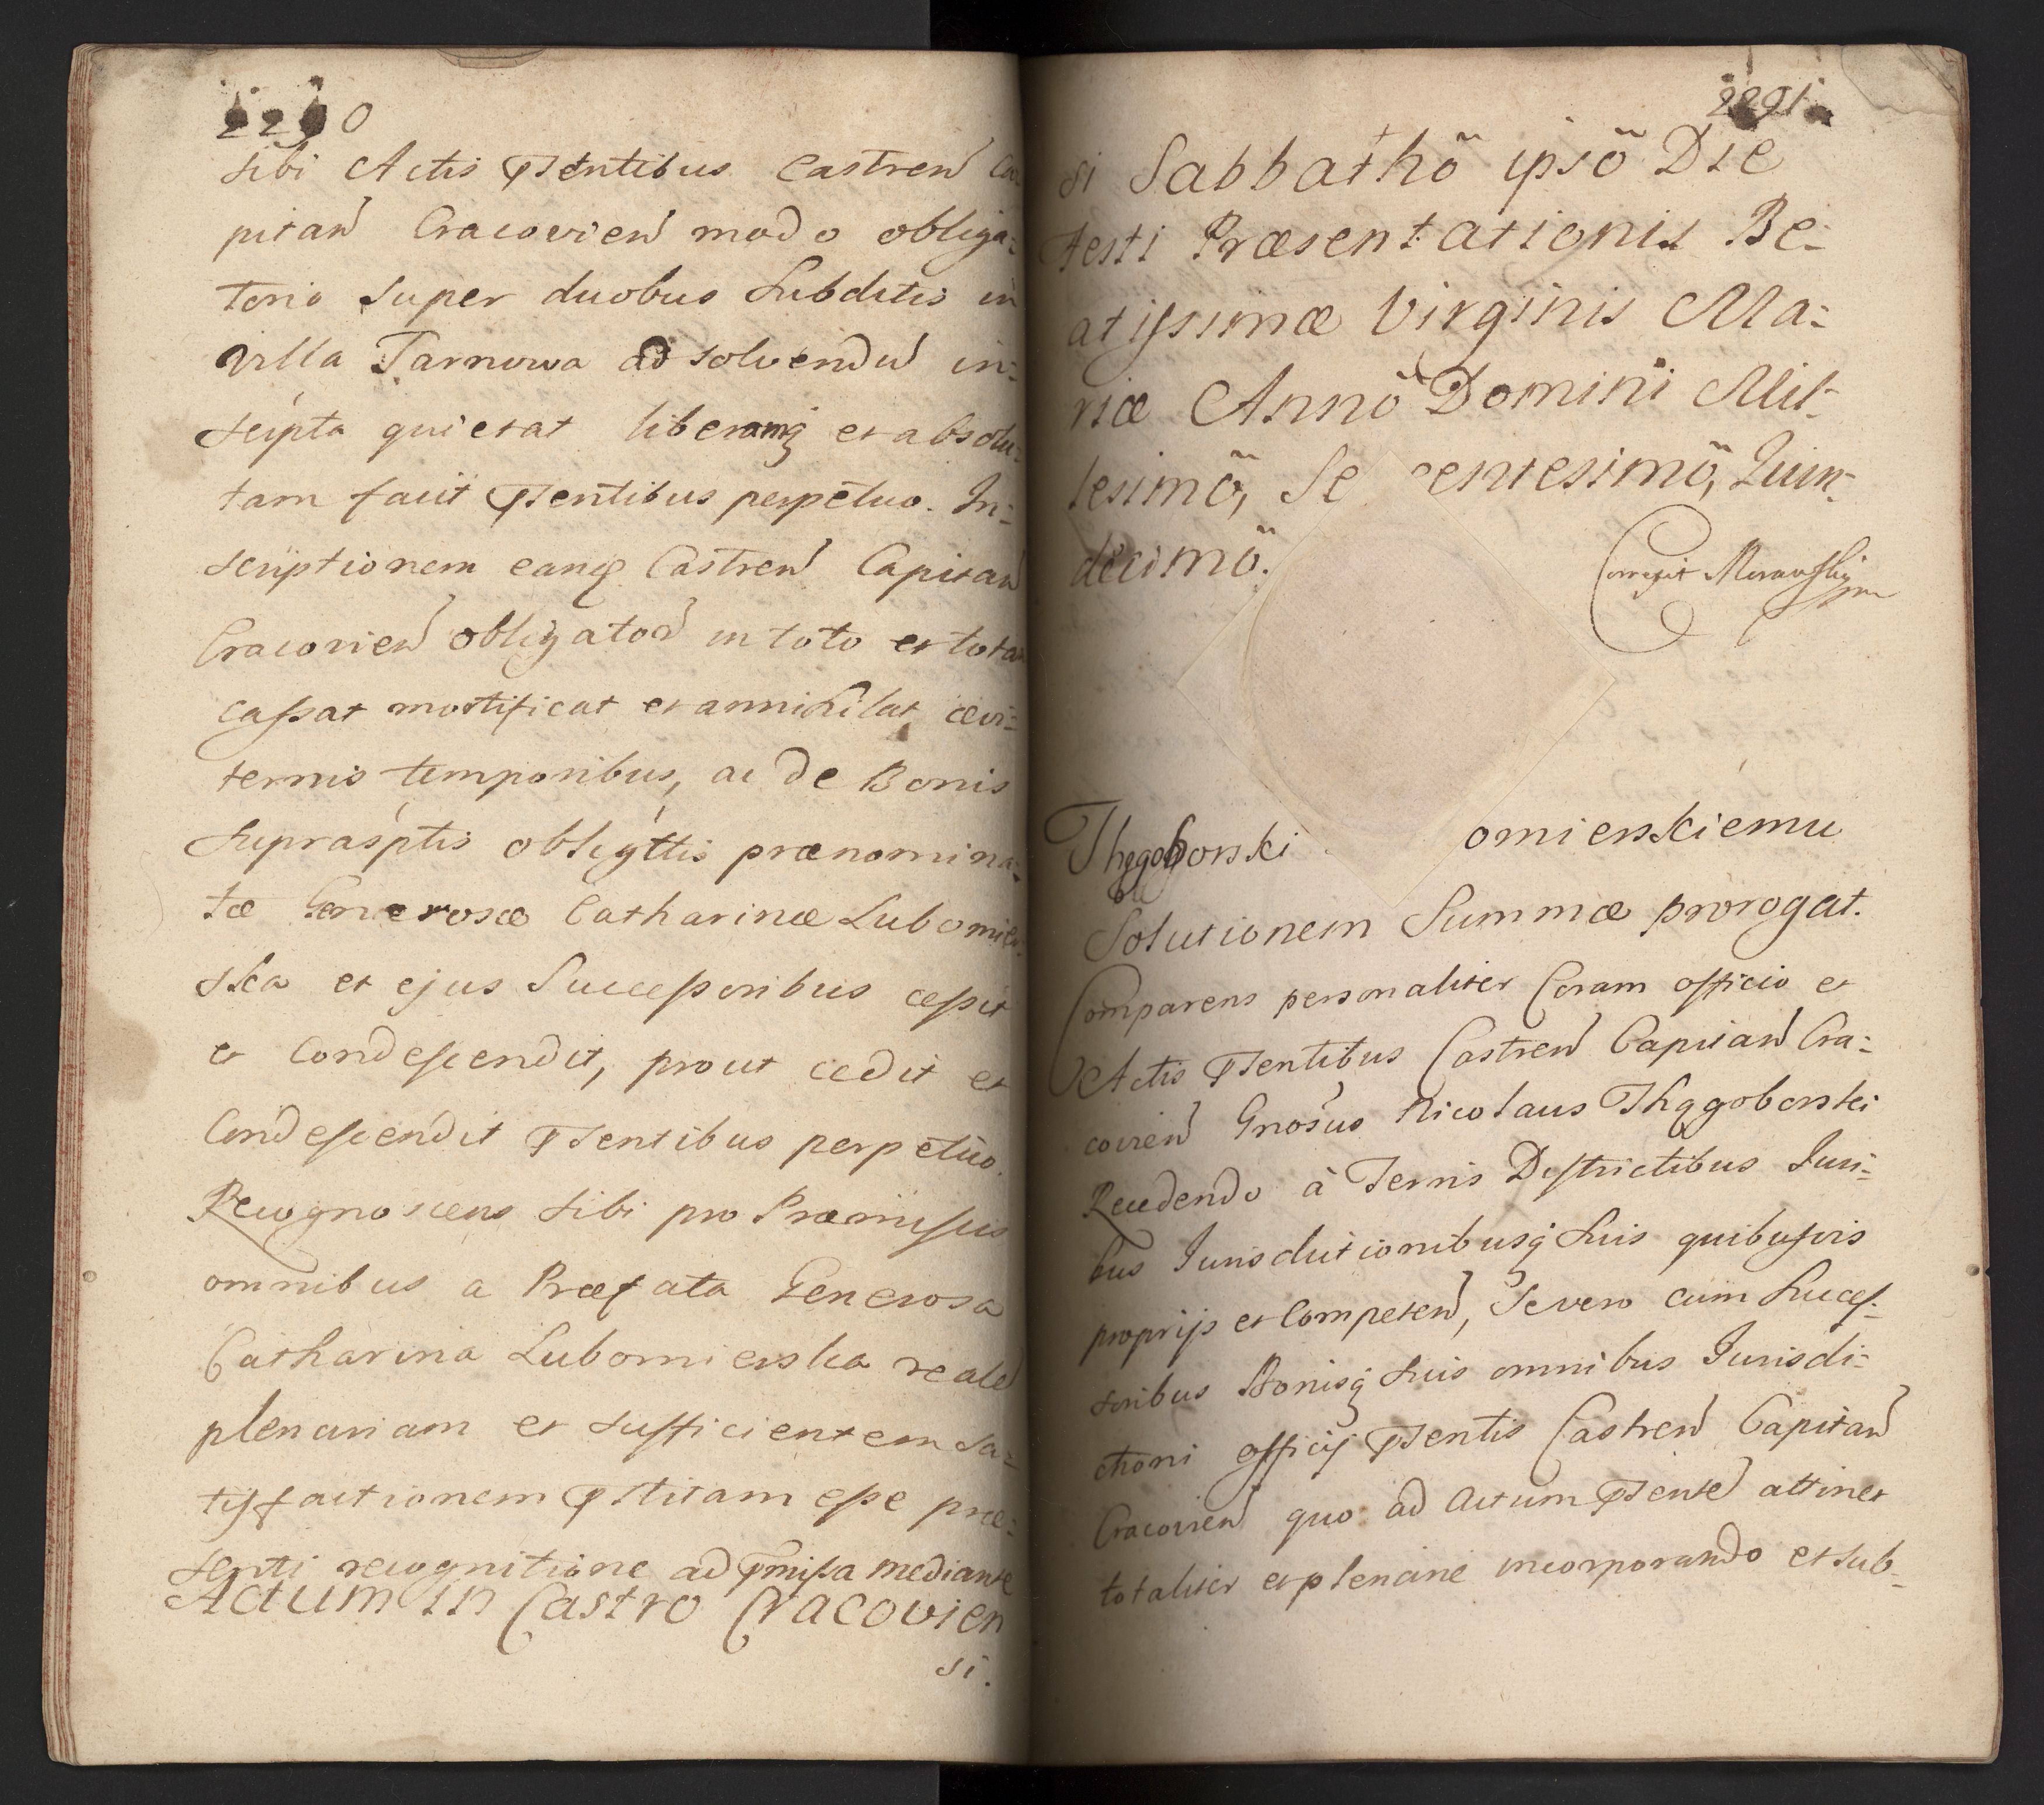 2290
sibi Actis Pſentibus Castreñ Ca-
pitañ Cracovień modo obliga=
torio super duobus Subditis in
villa Tarnowa ad solvendũ in=
scripta quietat liberamq̃ et absolu=
tam facit Pſentibus perpetuo. In=
scriptionem eamq̃ Castreñ Capitañ
Cracovień obligator̃ in toto et tota
caſsat mortificat et annihilat ævi=
ternis temporibus, ac de Bonis
supraſptis obligttis prænomina=
tæ Generosæ Catharinæ Lubomier=
ska et ejus Succeſsoribus ceſsit
et Condeſcendit, prout cedit et
Condeſcendit Pſentibus perpetuo.
Recognoscens sibi pro Præmiſsis
omnibus a Præfata Generosa
Catharina Lubomierska realẽ
plenariam et sufficientem sa=
tiſfactionem Pſtitam eſse præ=
senti recognitione ad p̃miſsa mediante
Actum in Castro Cracovien
si.
2291
si Sabbathõ ipsõ Die
Festi Præsentationis Be=
atiſsimæ Virginis Ma=
riæ Annõ Domini Mil=
lesimõ, Se centesimõ, Quin=
decimõ.
Correxit Morawſkij mp
Thęgoborski omierskiemu
Solutionem Summæ prorogat.
Comparens personaliter Coram officio et
Actis Pſentibus Castreñ Capitañ Cra=
covień Gnosus Nicolaus Thęgoborski
Recedendo à Terris Diſtrictibus Juri=
bus Jurisdictionibusq̃ suis quibuſvis
proprijs et Competeñ, Se vero cum Succeſ=
soribus Bonisq̃ suis omnibus Jurisdi=
ctioni officij Pſentis Castreñ Capitañ
Cracovień quo ad Actum Pſentẽ attinet
totaliter et plenarie incorporando et sub=